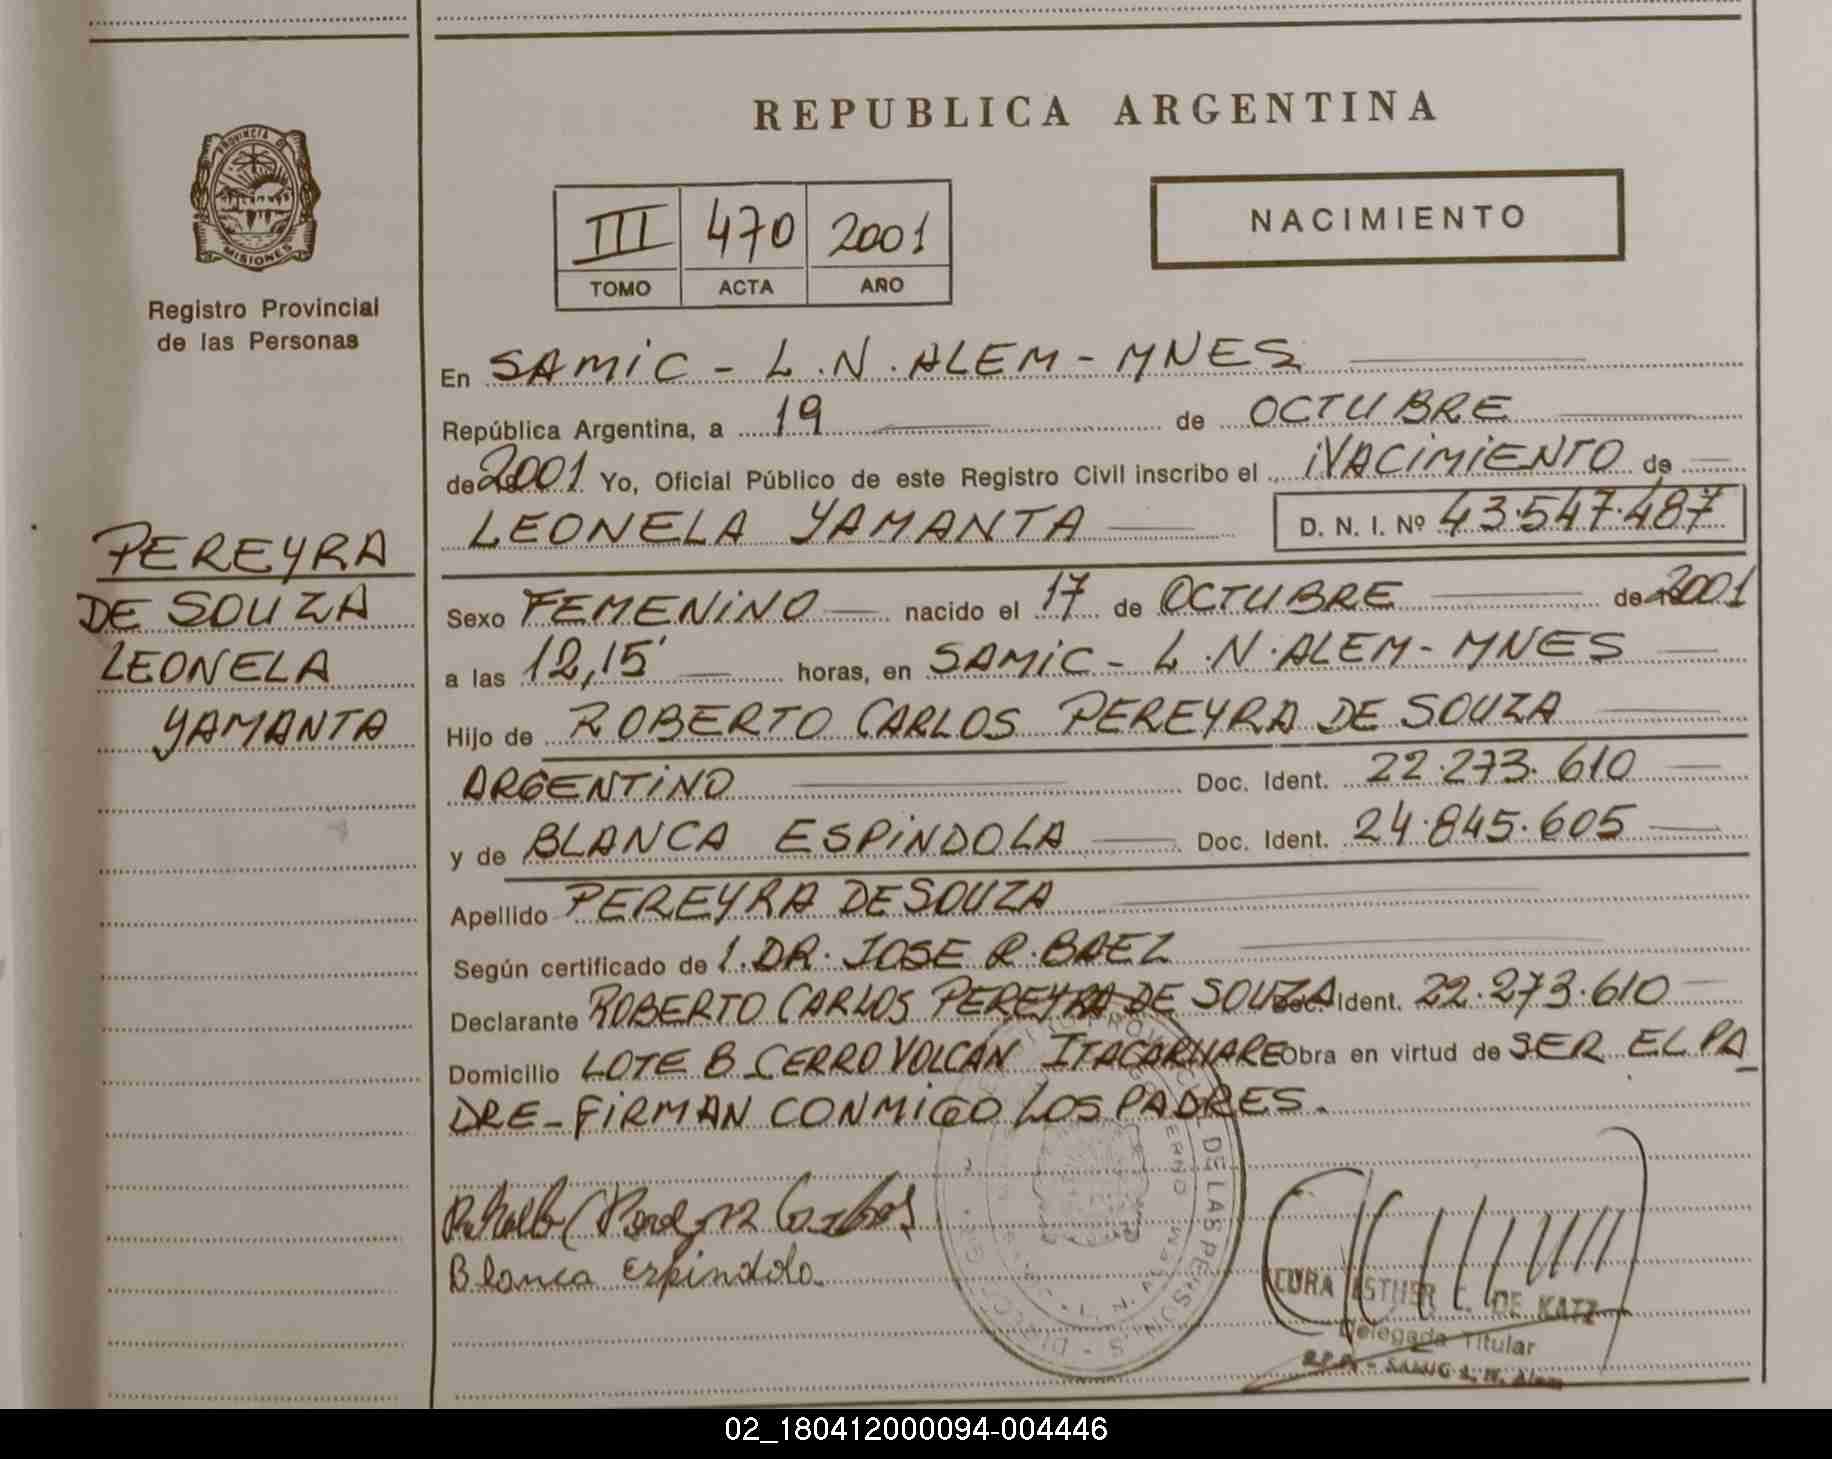 REPUBLICA ARGENTINA
PROVINCIA DE
MISIONES
Registro Provincial
de las Personas
III 470 2001
TOMO ACTA AÑO
NACIMIENTO
En SAMIC - L.N. ALEM - MNES
República Argentina, a 19 de OCTUBRE
de 2001 Yo, Oficial Público de este Registro Civil inscribo el NACIMIENTO de
LEONELA YAMANTA D. N. I. Nº 43.547.487
PEREYRA
DE SOUZA
LEONELA
YAMANTA
Sexo FEMENINO nacido el 17 de OCTUBRE de 2001
a las 12,15' horas, en SAMIC - L.N. ALEM - MNES
Hijo de ROBERTO CARLOS PEREYRA DE SOUZA
ARGENTINO Doc. Ident. 22.273.610
y de BLANCA ESPINDOLA Doc. Ident. 24.845.605
Apellido PEREYRA DE SOUZA
Según certificado de 1. DR. JOSE R. BAEZ
Declarante ROBERTO CARLOS PEREYRA DE SOUZA Doc. Ident. 22.273.610
Domicilio LOTE B CERRO VOLCAN ITACARUARE Obra en virtud de SER EL PA_
DRE - FIRMAN CONMIGO LOS PADRES.
Blanca Espindola
ESTHER C. DE KATZ
Delegada Titular
R.P.P. - SAMIC L. N. Alem
02_180412000094-004446